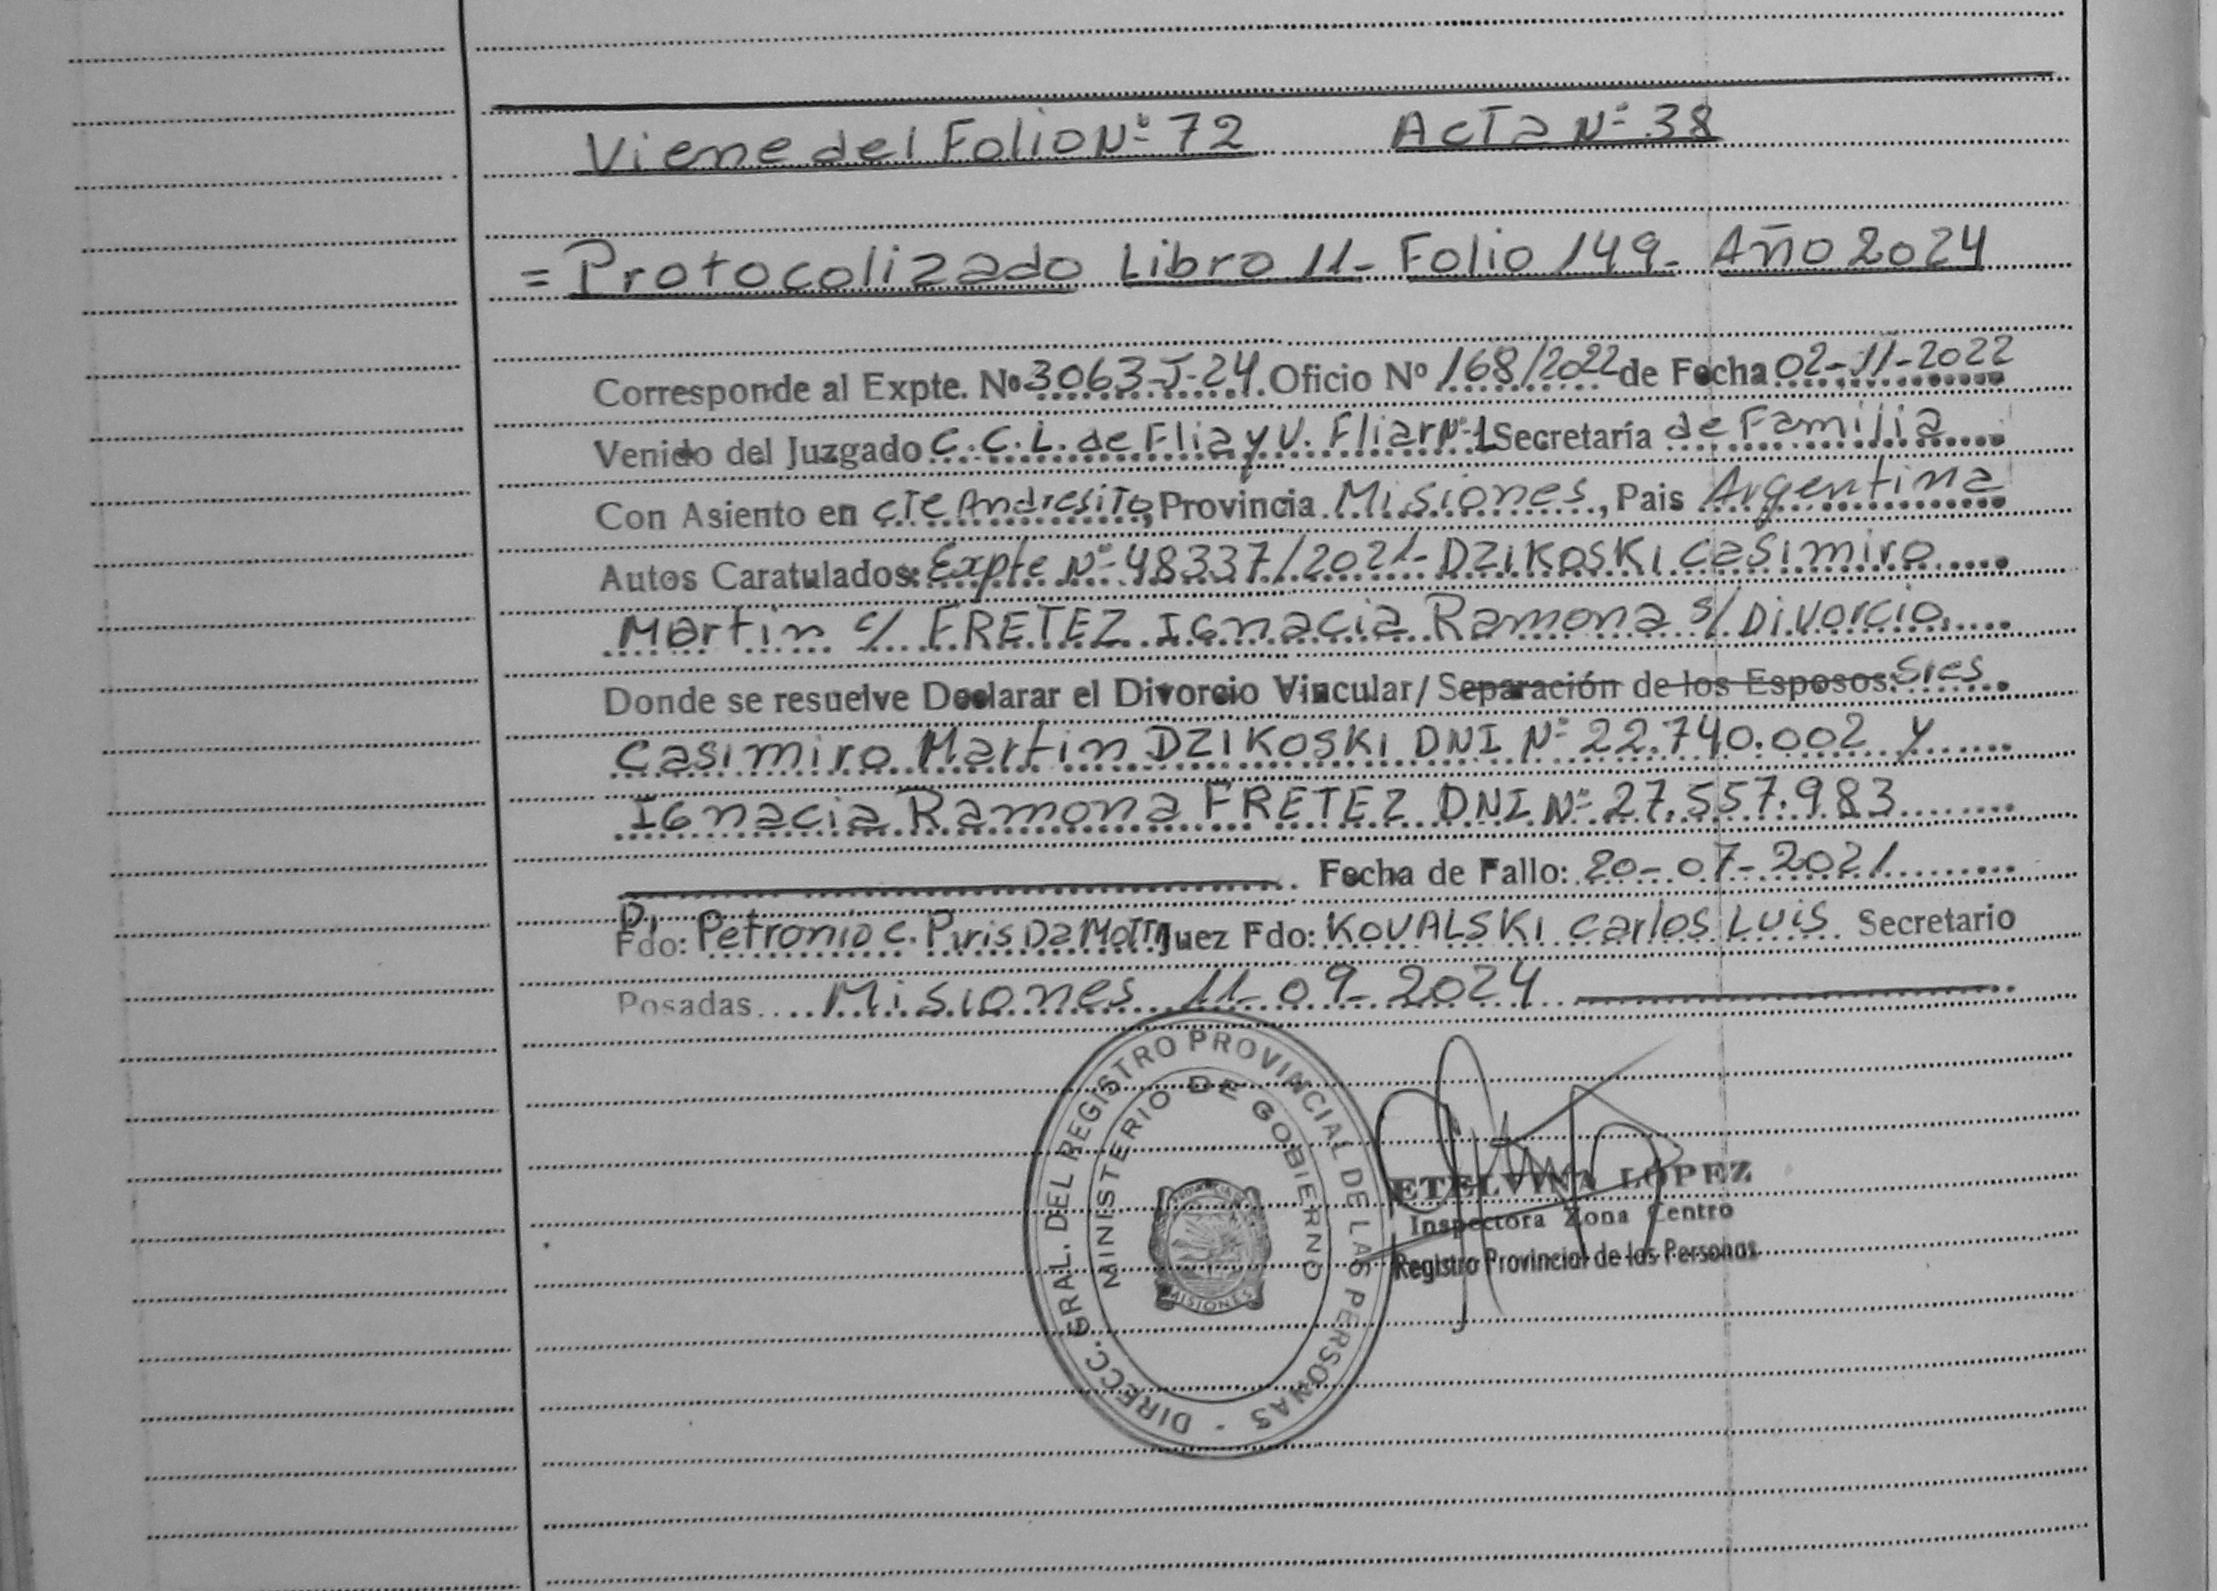 Viene del Folio Nº 72 Acta Nº 38
= Protocolizado Libro 11- Folio 149- Año 2024
Corresponde al Expte. Nº 3063-J-24. Oficio Nº 168/2022 de Fecha 02-11-2022
Venido del Juzgado C.C.L. de Flia y V. Fliar Nº 1 Secretaría de Familia
Con Asiento en cte Andresito, Provincia Misiones, Pais Argentina
Autos Caratulados: Expte Nº 48337/2021- DZIKOSKI Casimiro
Martin c/ FRETEZ Ignacia Ramona s/ Divorcio.
Donde se resuelve Declarar el Divorcio Vincular/Separación de los Esposos: Sres
Casimiro Martin DZIKOSKI DNI Nº 22.740.002 y
Ignacia Ramona FRETEZ DNI Nº 27.557.983
Fecha de Fallo: 20-07-2021
Fdo: Dr Petronio C. Piris Da Motta Juez Fdo: KOVALSKI Carlos Luis Secretario
Posadas Misiones 11-09-2024
DIRECC. GRAL. DEL REGISTRO PROVINCIAL DE LAS PERSONAS -
MINISTERIO DE GOBIERNO
MISIONES
ETELVINA LOPEZ
Inspectora Zona Centro
Registro Provincial de las Personas